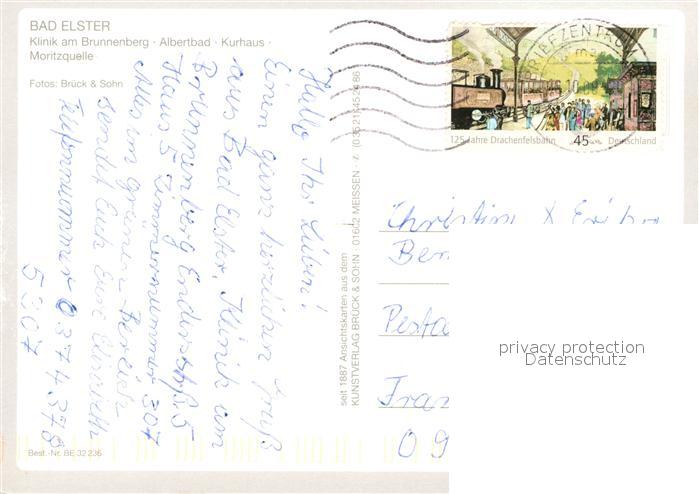 BAD ELSTER
Klinik am Brunnenberg · Albertbad · Kurhaus ·
Moritzquelle
Fotos: Brück & Sohn
Hallo Ihr Lieben!
Einen ganz herzlichen Gruß
aus Bad Elster, Klinik am
Brunnenberg Endersstraß. 5
Haus 5 Zimmernummer 307
Alles im grünen Bereich
sendet Euch Eure
Telefonnummer 0374378
5307
Best.-Nr. BE 32 236
seit 1887 Ansichtskarten aus dem
KUNSTVERLAG BRÜCK & SOHN · 01662 MEISSEN
BRIEFZENTRUM
125 Jahre Drachenfelsbahn
45
Deutschland
Christina
Ber
Pesta
Fran
09
privacy protection
Datenschutz